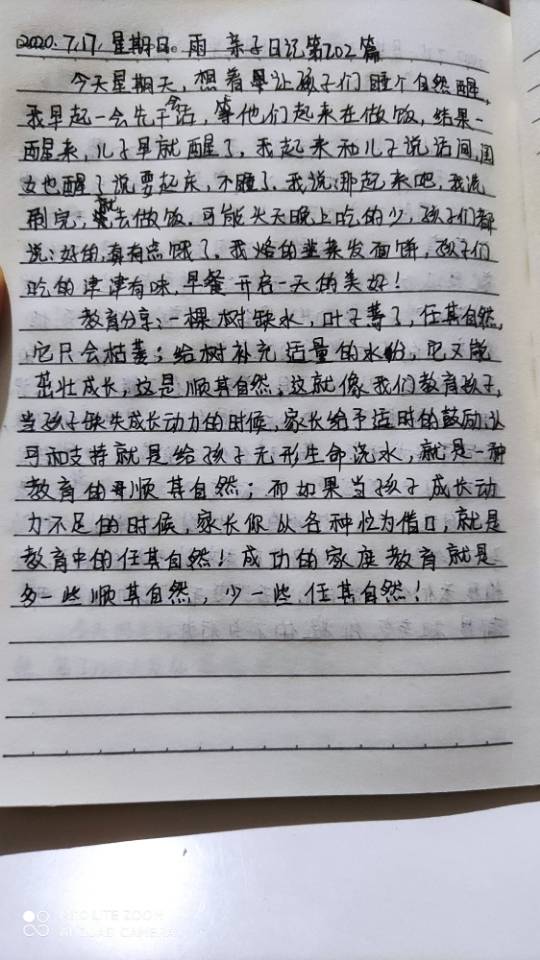 2020.7.17.星期日。雨 亲子日记第202篇
今天星期天，想着让孩子们睡个自然醒，
我早起一会先干会活，等他们起来在做饭，结果一
醒来，儿子早就醒了，我起来和儿子说话间，闺
女也醒了说要起床，不睡了，我说：那起来吧，我洗
刷完，就去做饭，可能头天晚上吃的少，孩子们都
说：好的，真有点饿了，我烙的韭菜发面饼，孩子们
吃的津津有味，早餐开启一天的美好！
教育分享：一棵树缺水，叶子蔫了，任其自然，
它只会枯萎；给树补充适量的水份，它又能
茁壮成长，这是顺其自然，这就像我们教育孩子，
当孩子缺失成长动力的时候，家长给予适时的鼓励，认
可和支持就是给孩子无形生命浇水，就是一种
教育的顺其自然；而如果当孩子成长动
力不足的时候，家长你以各种忙为借口，就是
教育中的任其自然！成功的家庭教育就是
多一些顺其自然，少一些任其自然！
LITE ZOOM
AI QUAD CAMERA